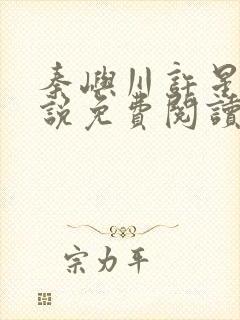 秦嶼川許星
說免費閱讀
宗力平